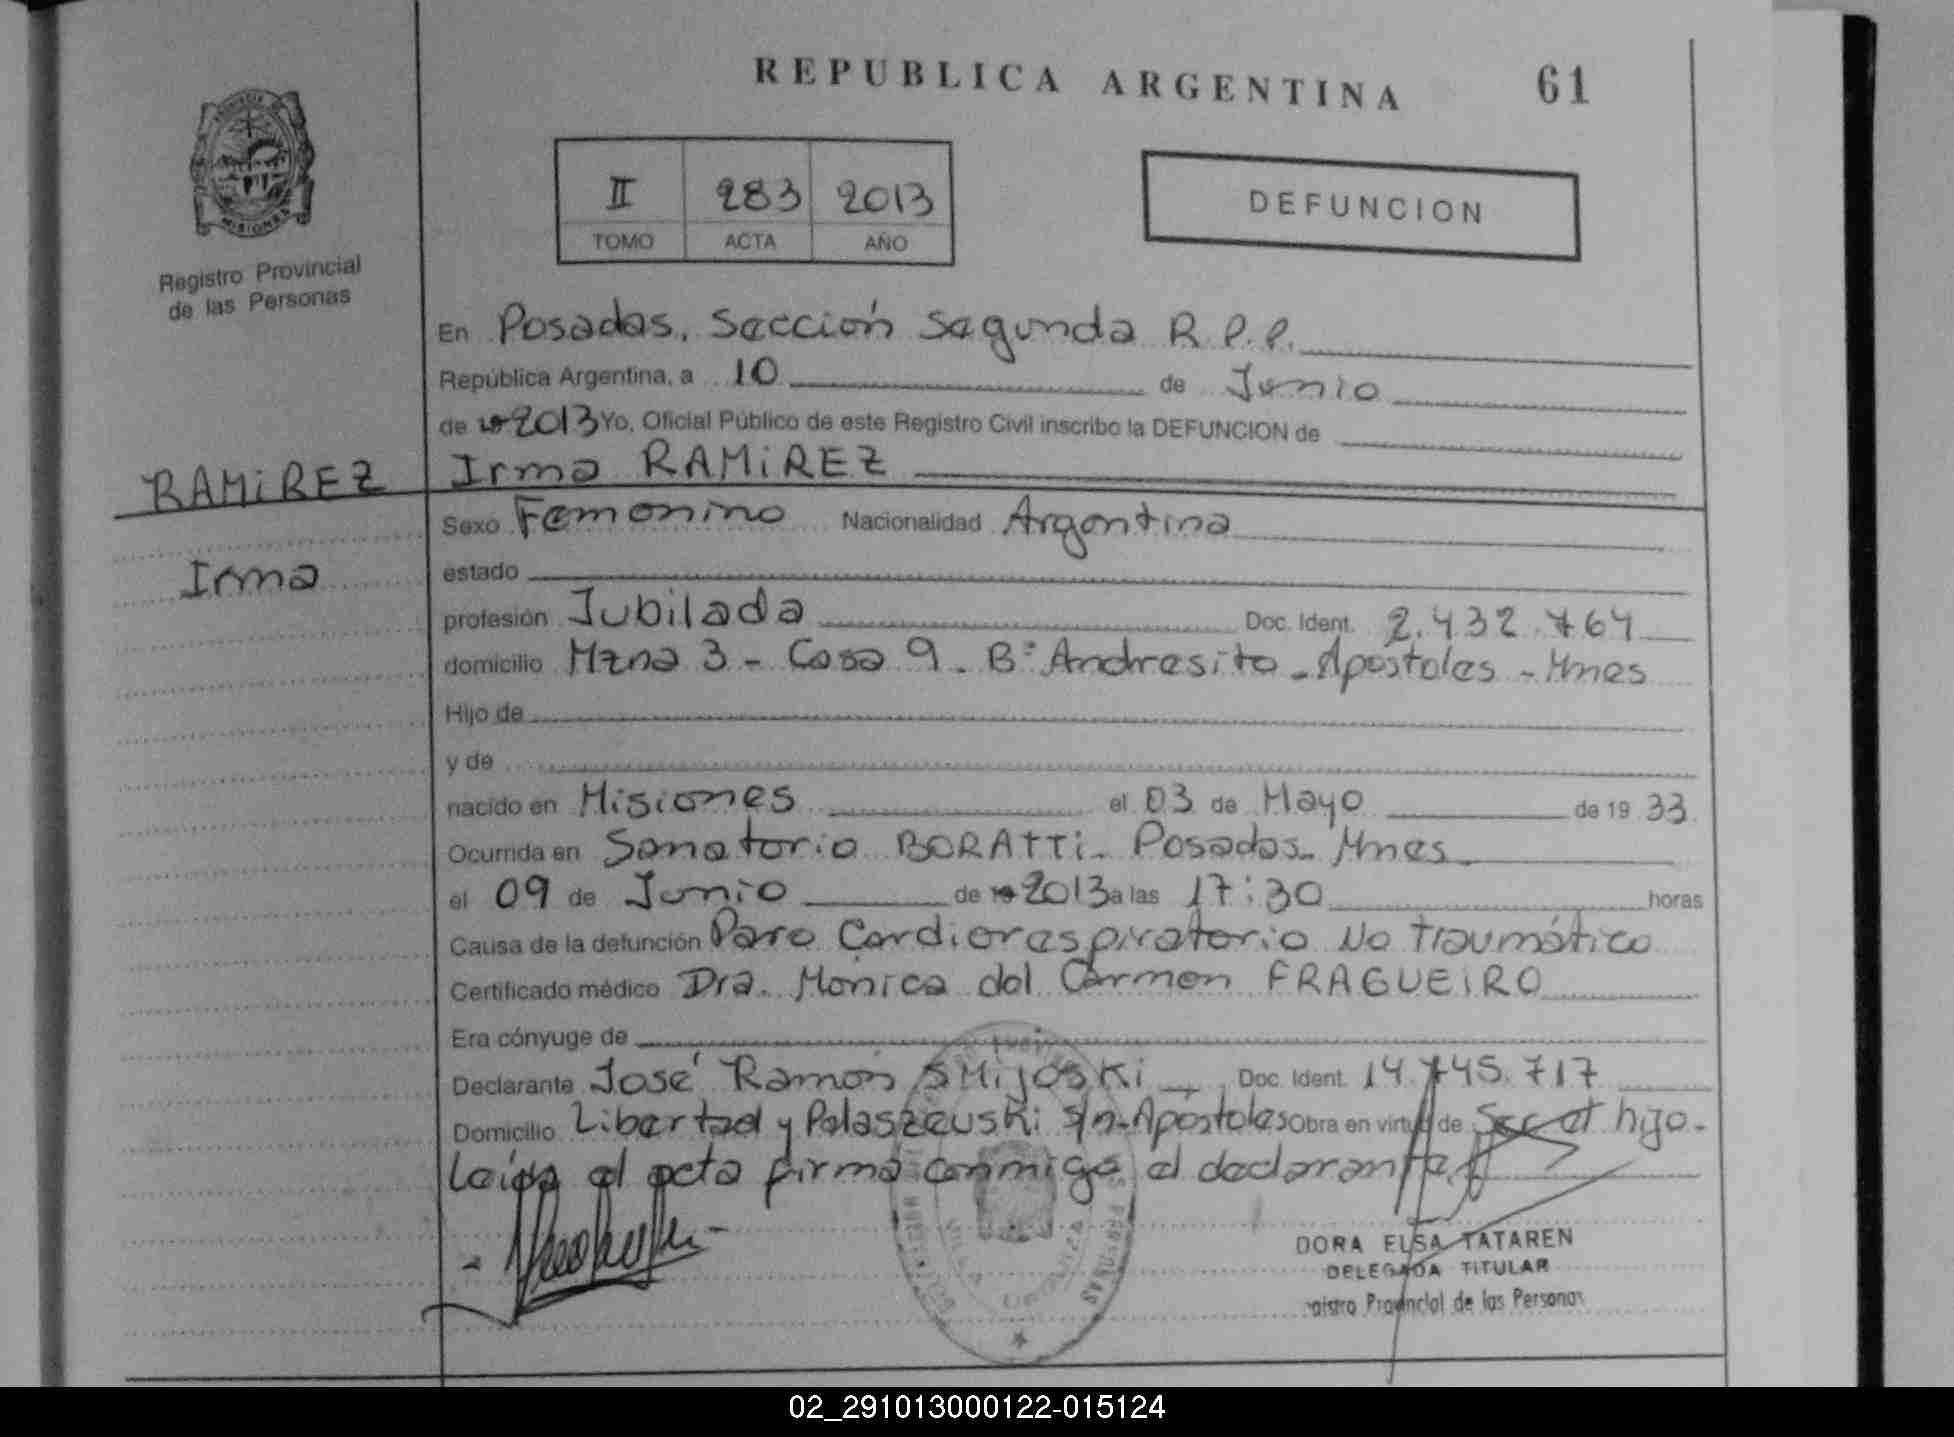 REPUBLICA ARGENTINA 61
PROVINCIA DE MISIONES
Registro Provincial
de las Personas
II 283 2013
TOMO ACTA AÑO
DEFUNCION
En Posadas, Sección Segunda R.P.P.
República Argentina, a 10 de Junio
de 19 2013 Yo, Oficial Público de este Registro Civil inscribo la DEFUNCION de
RAMiREZ Irma RAMiREZ
Sexo Femenino Nacionalidad Argentina
Irma
estado
profesión Jubilada Doc. Ident. 2.432.764
domicilio Mzna 3 - Casa 9 - B° Andresito - Apostoles - Mnes
Hijo de
y de
nacido en Misiones el 03 de Mayo de 19 33
Ocurrida en Sanatorio BORATTi - Posadas - Mnes
el 09 de Junio de 19 2013 a las 17:30 horas
Causa de la defunción Paro Cardiorespiratorio No traumático
Certificado médico Dra. Monica del Carmen FRAGUEiRO
Era cónyuge de
Declarante José Ramón SMiJOSKi Doc. Ident. 14.745.717
Domicilio Libertad y Palaszeuski s/n - Apóstoles Obra en virtud de Ser el hijo.
Leída el acta firma conmigo el declarante
DORA ELSA TATAREN
DELEGADA TITULAR
Registro Provincial de las Personas
02_291013000122-015124